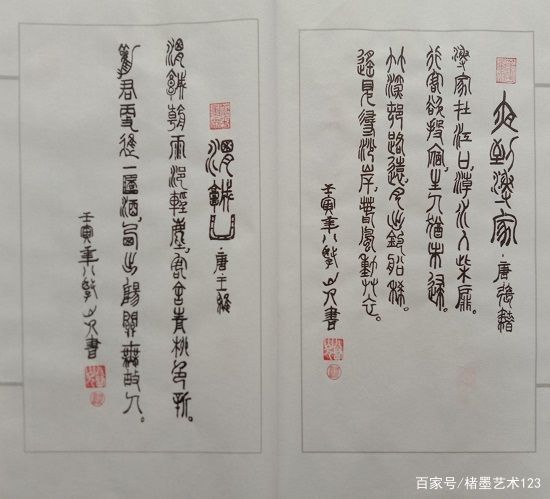 夜到漁家·唐 張籍
漁家在江口,潮水入柴扉。
行客欲投宿,主人猶未歸。
竹深村路遠,月出釣船稀。
遙見尋沙岸,春風動草衣。
壬寅年八 書
渭城曲·唐 王維
渭城朝雨浥輕塵,客舍青柳色新。
勸君更盡一杯酒,西出陽關無故人。
壬寅年八 書
百家号/楮墨艺术123